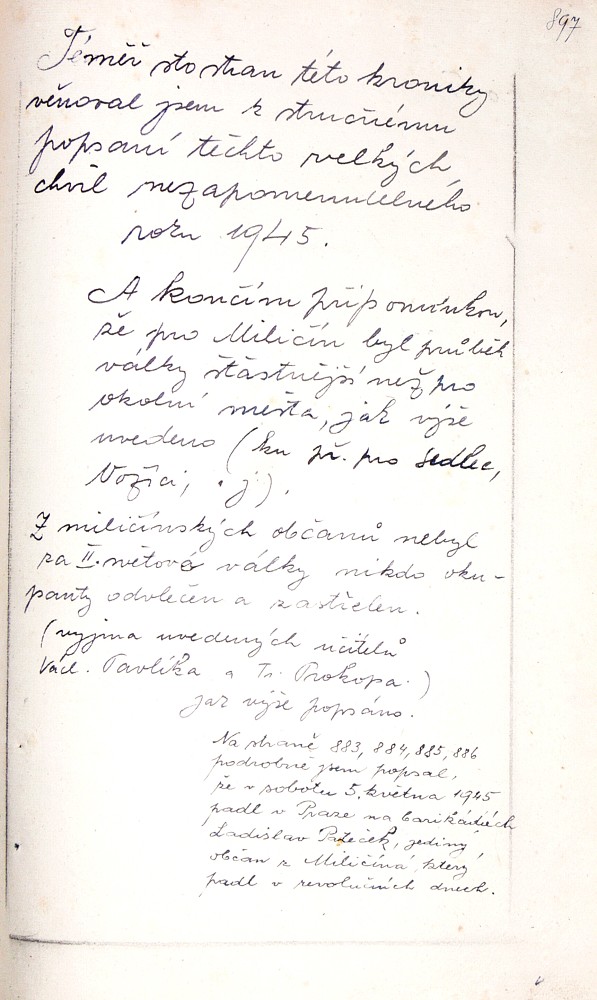 897
Téměř sto stran této kroniky
věnoval jsem k stručnému
popsaní těchto velkých
chvil nezapomenutelného
roku 1945.
A končím připomínkou,
že pro Miličín byl průběh
války šťastnější než pro
okolní města, jak výše
uvedeno (ku př. pro Sedlec,
Vožici, a j.).
Z miličínských občanů nebyl
za II. světové války nikdo oku-
panty odvlečen a zastřelen.
(vyjma uvedených učitelů
Václ. Pavlíka a Fr. Prokopa.)
jak výše popsáno.
Na straně 883, 884, 885, 886
podrobně jsem popsal,
že v sobotu 5. května 1945
padl v Praze na barikádách
Ladislav jediný
občan z Miličína, který
padl v revolučních dnech.